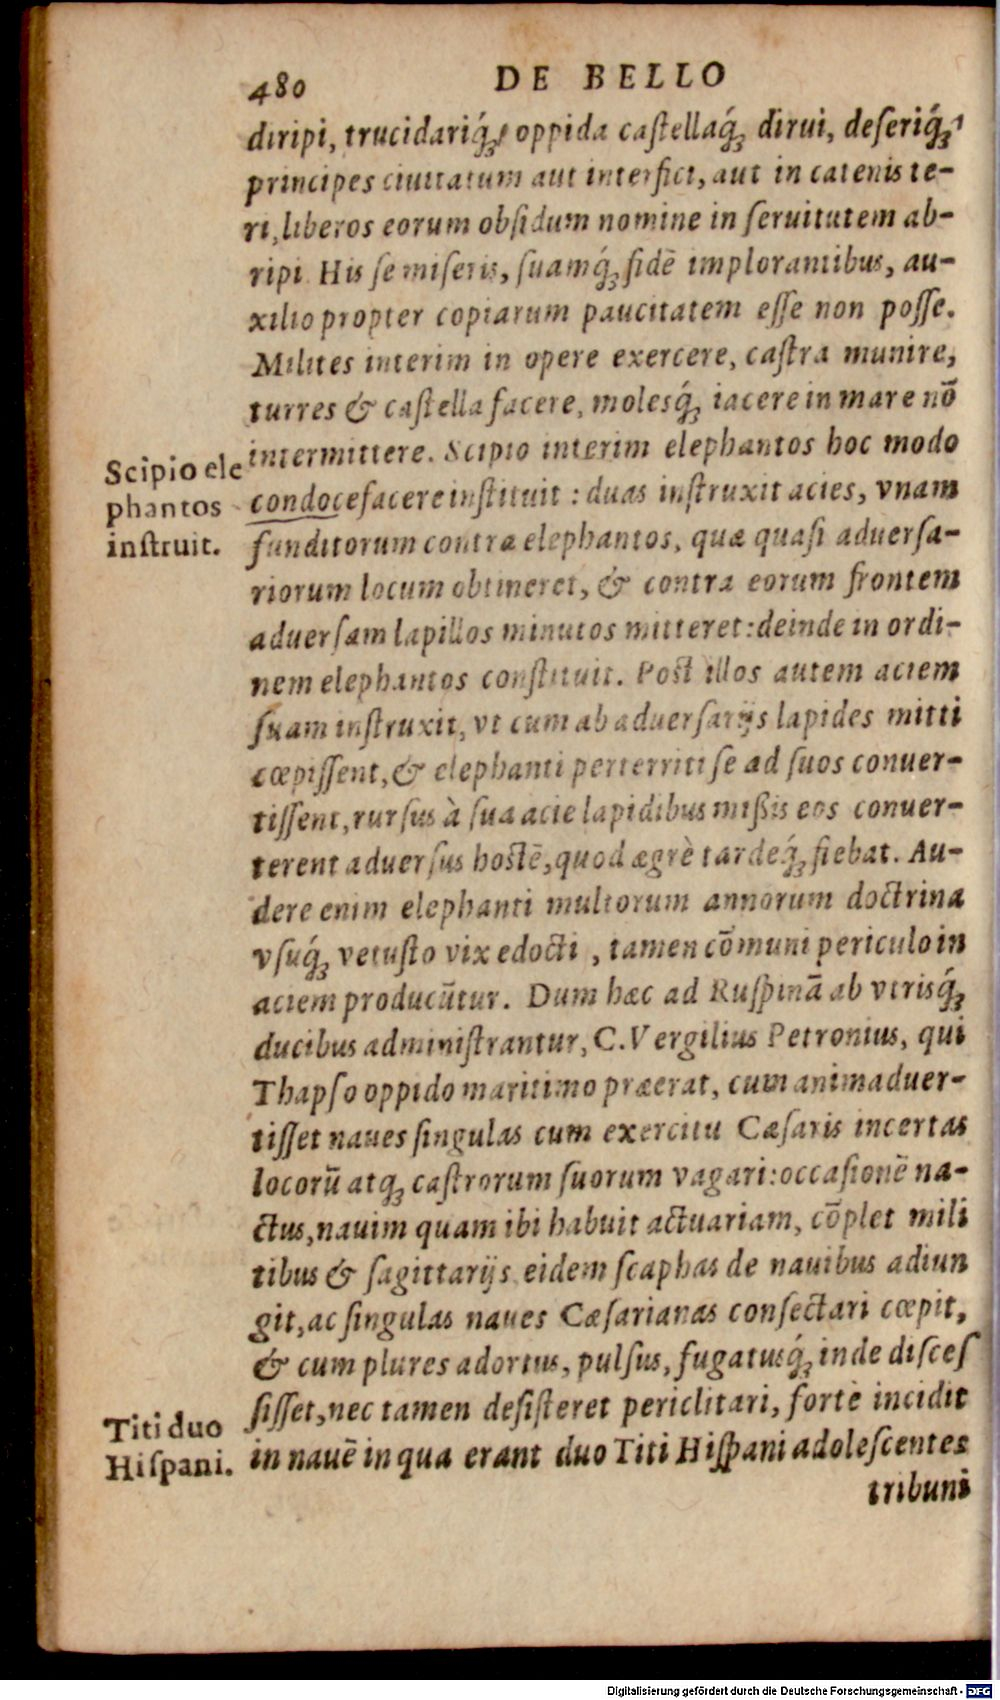 480 DE BELLO
diripi, trucidariq́ꝫ, oppida caſtellaq́ꝫ dirui, deſeriq́ꝫ,
principes ciuitatum aut interfici, aut in catenis te-
ri, liberos eorum obſidum nomine in ſeruitutem ab-
ripi. His ſe miſeris, ſuamq́ꝫ fidē implorantibus, au-
xilio propter copiarum paucitatem eſſe non poſſe.
Milites interim in opere exercere, caſtra munire,
turres & caſtella facere, molesq́ꝫ iacere in mare nō
intermittere. Scipio interim elephantos hoc modo
condocefacere inſtituit : duas inſtruxit acies, vnam
funditorum contra elephantos, quæ quaſi aduerſa-
riorum locum obtineret, & contra eorum frontem
aduerſam lapillos minutos mitteret: deinde in ordi-
nem elephantos conſtituit. Poſt illos autem aciem
ſuam inſtruxit, vt cum ab aduerſarijs lapides mitti
cœpiſſent, & elephanti perterriti ſe ad ſuos conuer-
tiſſent, rurſus à ſua acie lapidibus mißis eos conuer-
terent aduerſus hoſtē, quod ægrè tardeq́ꝫ fiebat. Au-
dere enim elephanti multorum annorum doctrina
vſuq́ꝫ vetuſto vix edocti , tamen cōmuni periculo in
aciem producūtur. Dum hæc ad Ruſpinā ab vtrisq́ꝫ
ducibus adminiſtrantur, C. Vergilius Petronius, qui
Thapſo oppido maritimo præerat, cum animaduer-
tiſſet naues ſingulas cum exercitu Cæſaris incertas
locorū atqꝫ caſtrorum ſuorum vagari: occaſionē na-
ctus, nauim quam ibi habuit actuariam, cōplet mili
tibus & ſagittarijs eidem ſcaphas de nauibus adiun
git, ac ſingulas naues Cæſarianas conſectari cœpit,
& cum plures adortus, pulſus, fugatusq́ꝫ inde diſceſ
ſiſſet, nec tamen deſiſteret periclitari, fortè incidit
in nauē in qua erant duo Titi Hiſpani adoleſcentes
tribuni
Scipio ele
phantos
inſtruit.
Titi duo
Hiſpani.
Digitalisierung gefördert durch die Deutsche Forschungsgemeinschaft - DFG